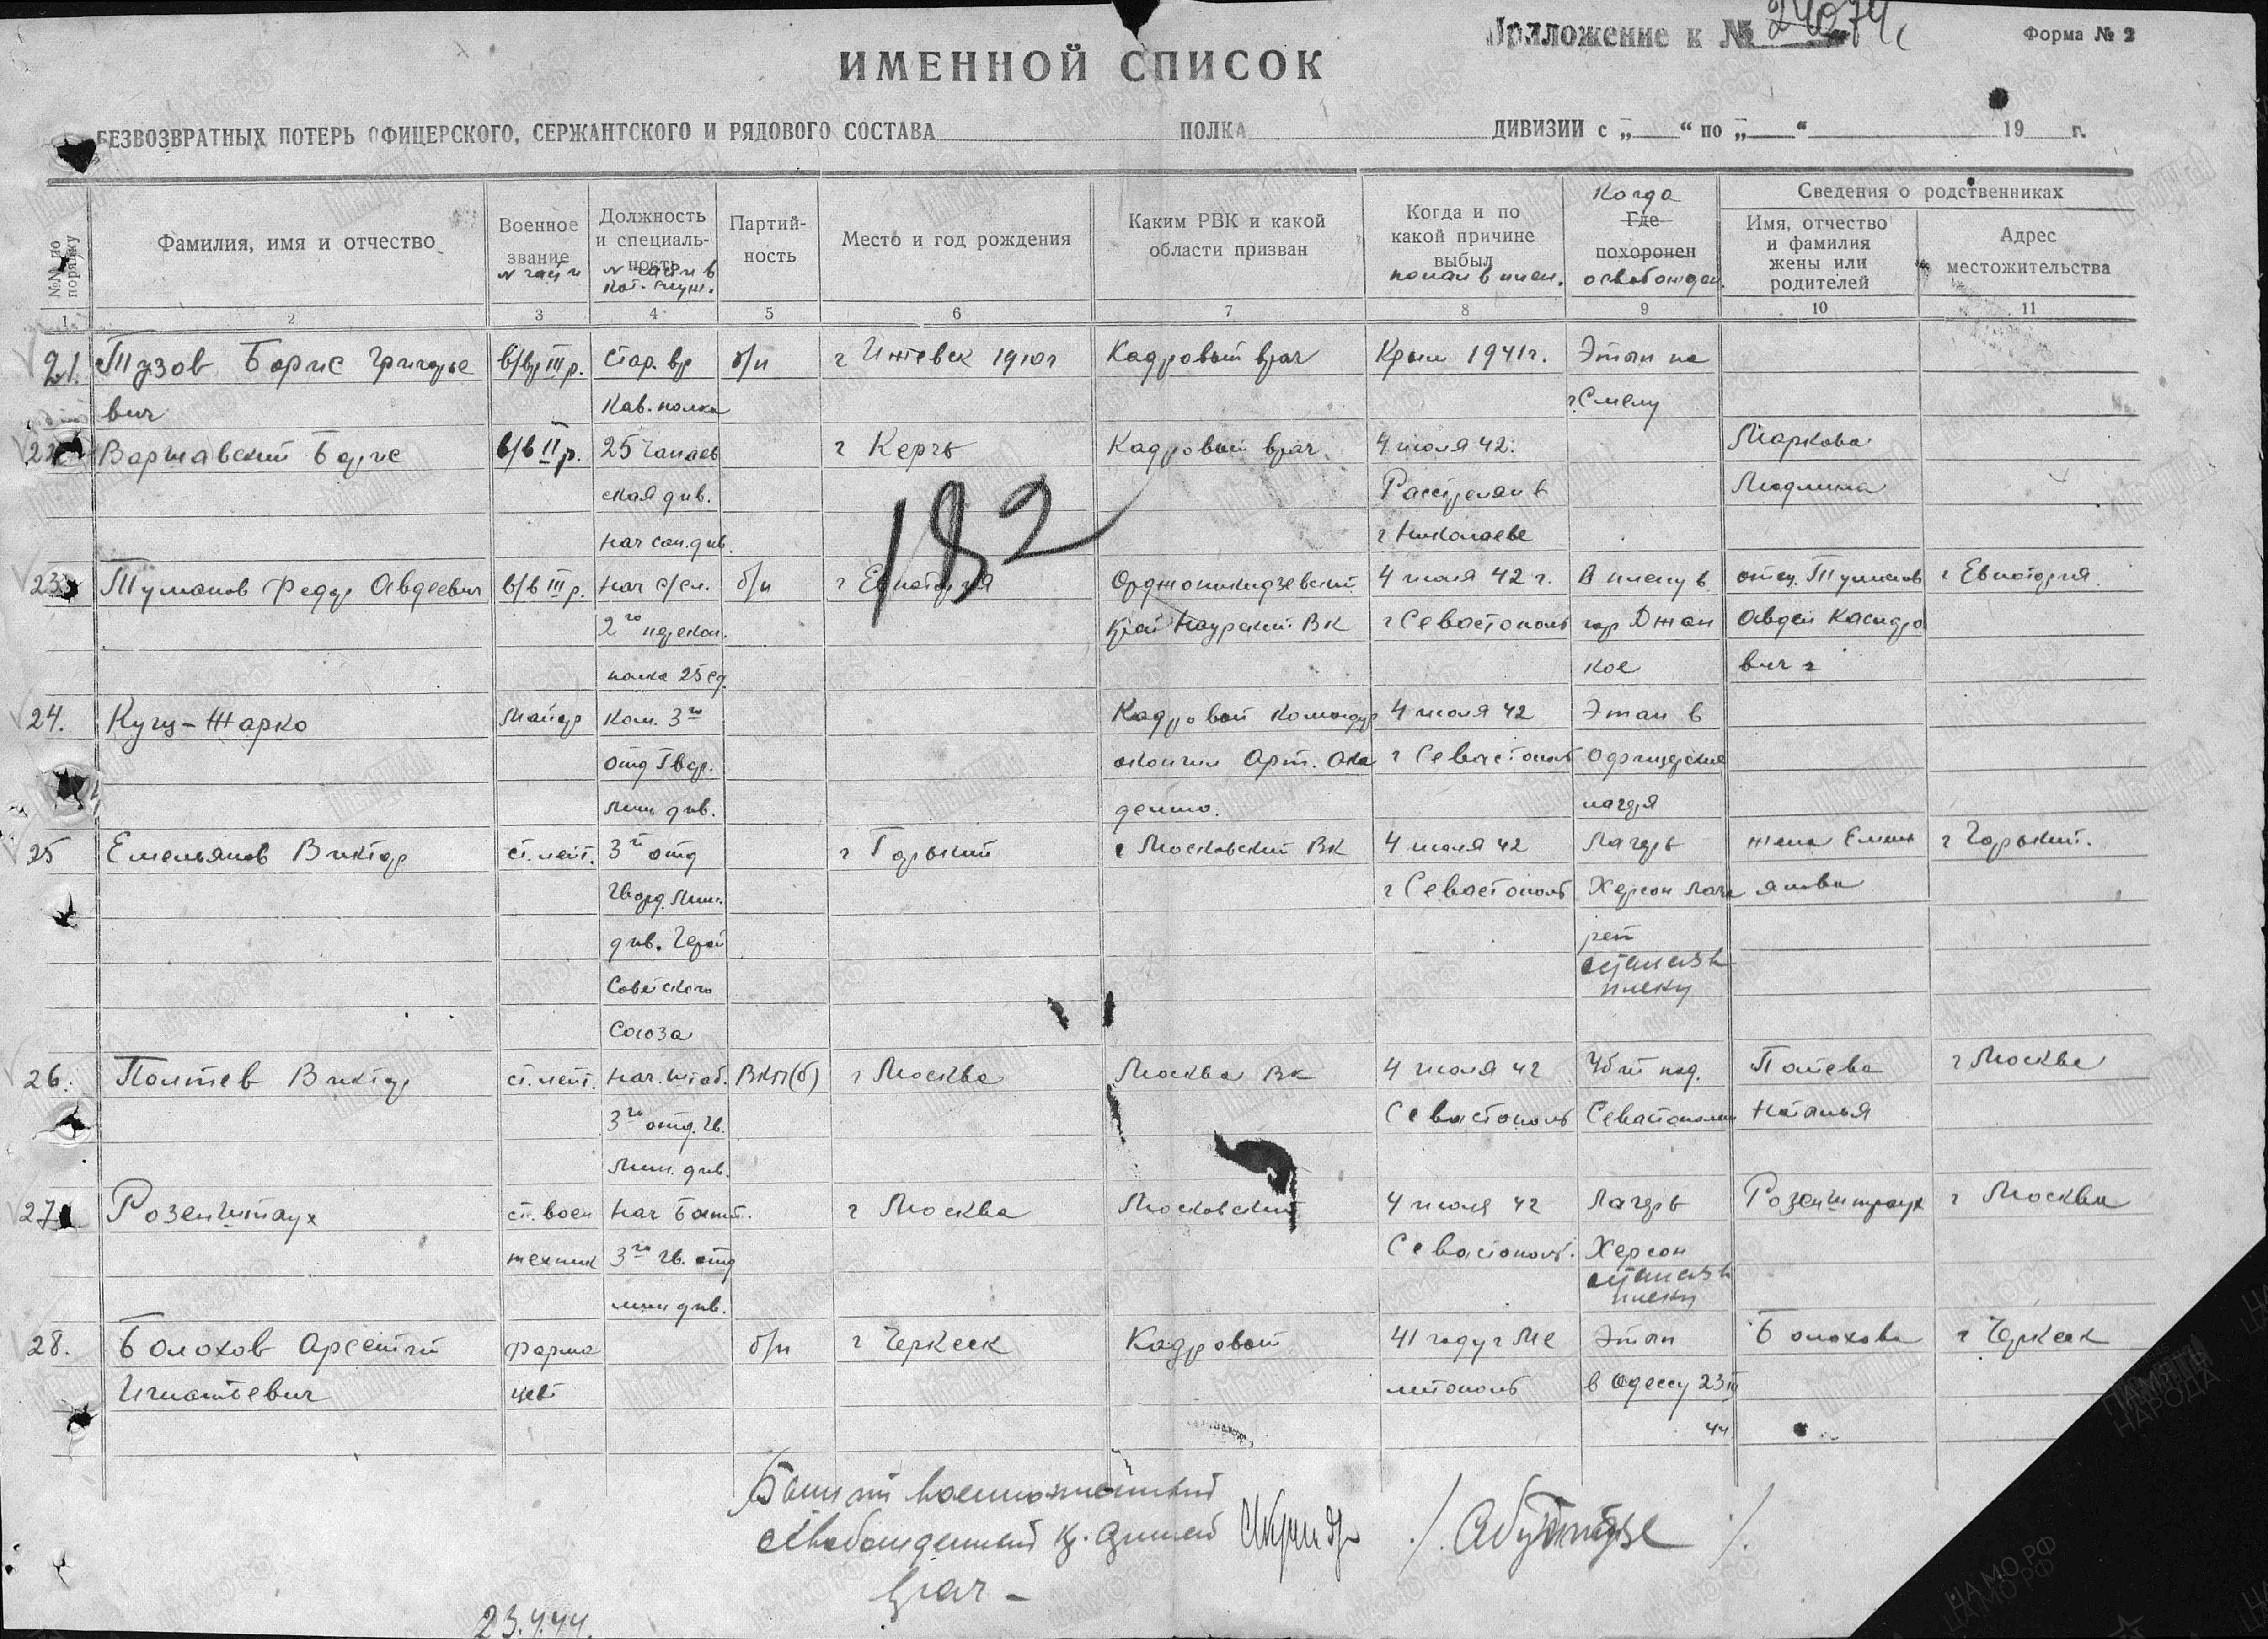 Приложение к № 24074с
Форма № 2
ИМЕННОЙ СПИСОК
БЕЗВОЗВРАТНЫХ ПОТЕРЬ ОФИЦЕРСКОГО, СЕРЖАНТСКОГО И РЯДОВОГО СОСТАВА ПОЛКА ДИВИЗИИ с „ “ по „ “ 19 г.
№№ по порядку
Фамилия, имя и отчество
Военное звание
№ части
Должность и специальность
№ части в кот. служ.
Партийность
Место и год рождения
Каким РВК и какой области призван
Когда и по какой причине выбыл
попал в плен.
Когда
Где похоронен
освобожден.
Сведения о родственниках
Имя, отчество и фамилия жены или родителей
Адрес местожительства
1 2 3 4 5 6 7 8 9 10 11
21. Тузов Борис Григорье в/вр III р. Стар. вр б/п г Ижевск 1910г Кадровый врач Крым 1941г. Этап на
вич Кав. полка г. Смелу
22 Варшавский Борис в/в II р. 25 Чапаев г Керчь Кадровый врач. 4 июля 42. Маркова
ская див. Расстрелян в Людмила
нач сан. див. г Николаеве
182
23 Туманов Федор Авдеевич в/в III р. нач с/сл. б/п г Евпатория Орджоникидзевский 4 июля 42 г. В плену в отец. Туманов г Евпатория.
2го перекоп. край Наурский ВК г Севастополь гор Джан Авдей Каспаро
полка 25 сд. кое вич г
24. Кучу-Жарко Майор Ком. 3го Кадровый командир 4 июля 42 Этап в
отд Гвар. окончил Арт. Ака г Севастополь офицерские
мин. див. демию. лагеря
25 Емельянов Виктор ст. лейт. 3й отд г Горький г Московский ВК 4 июля 42 Лагерь жена Емель г Горький.
гвард. мин. г Севастополь Херсон лаза янова
див. Герой рет
Советского остался в
Союза плену
26. Полтев Виктор ст. лейт. нач. штаб. ВКП(б) г Москва Москва ВК 4 июля 42 Убит под. Потева г Москва
3го отд. гв. Севастополь Севастополем Наталья
мин. див.
27 Розенштаух ст. воен нач Боепит. г Москва Московский 4 июля 42 Лагерь Розенштраух г Москва
техник 3го гв. отд Севастополь. Херсон
мин див. остался в
плену
28. Болохов Арсентий фарма б/п г Черкеск Кадровый 41 году г Ме Этап Болохова г Черкеск
Игнатьевич цевт литополь в Одессу 23 III
44
Бывший военнопленный
освобожденный кр. армией / Абутидзе /.
врач –
23.4.44.